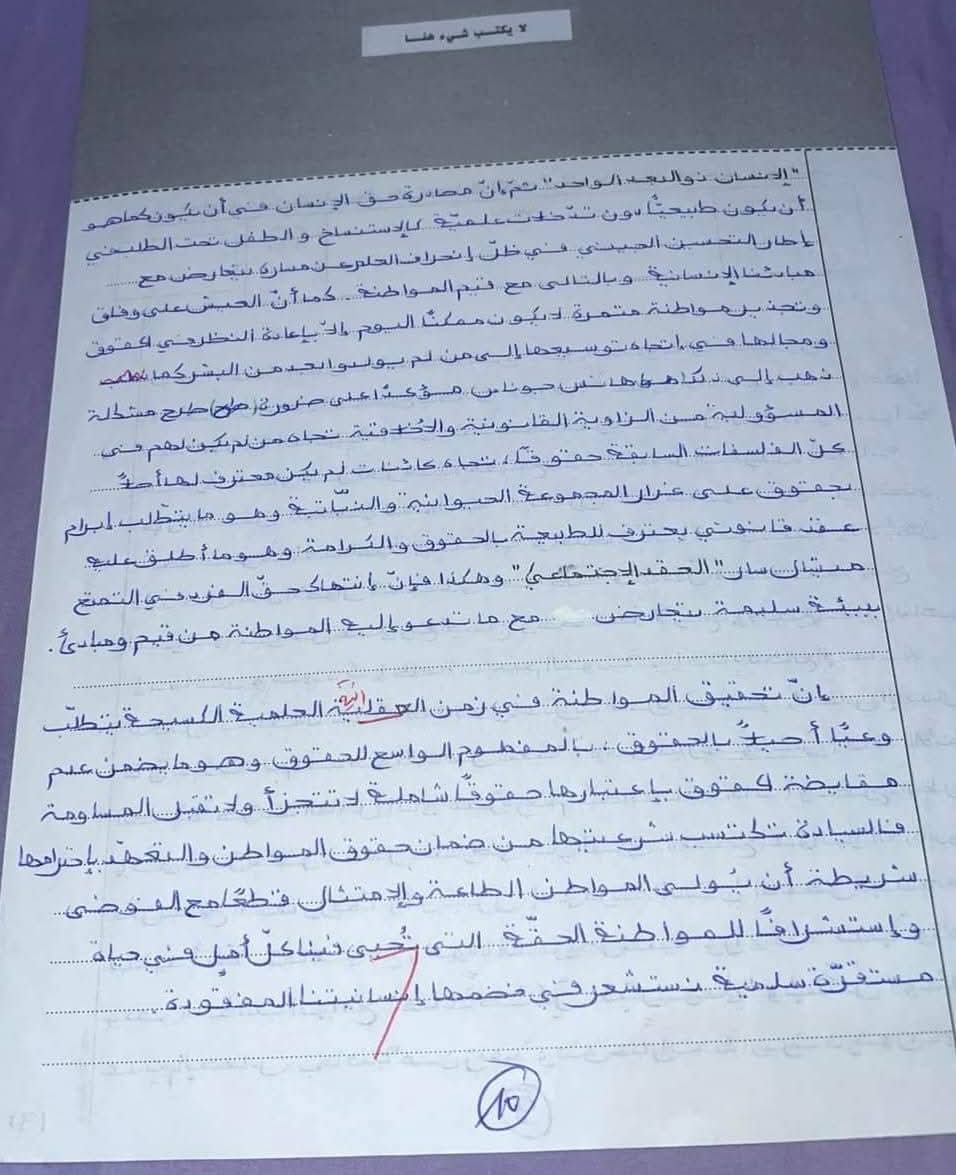 لا يكتب شيء هنا
"الإنسان ذو البعد الواحد" ثمّ إنّ مصادرة حق الإنسان في أن يكون كما هو
أن يكون طبيعيًّا دون تدخلات علميّة كالإستنساخ والطفل تحت الطلب في
إطار التحسين الجيني في ظلّ إنحراف العلم عن مساره يتعارض مع
مبادئنا الإنسانية وبالتالي مع قيم المواطنة. كما أنّ العيش على وفاق
وتجذير مواطنة مثمرة لا يكون ممكنًا اليوم إلاّ بإعادة النظر في الحقوق
ومجالها في إتجاه توسيعها إلى من لم يولدوا بعد من البشر كما
ذهب إلى ذلك هانس جوناس مؤكّدًا على ضرورة طرح مشكلة
المسؤولية من الزاوية القانونية والأخلاقية تجاه من لم يكن لهم في
كلّ الفلسفات السابقة حقوقًا، تجاه كائنات لم يكن معترف لها أصلاً
بحقوق على غرار المجموعة الحيوانية والنبّاتية وهو ما يتطلب إبرام
عقد قانوني يعترف للطبيعة بالحقوق والكرامة وهو ما أطلق عليه
ميشال سار "العقد الإجتماعي" وهكذا فإنّ إنتهاك حقّ الفرد في التمتع
ببيئة سليمة يتعارض مع ما تدعو إليه المواطنة من قيم ومبادئ.
إنّ تحقيق المواطنة في زمن العقلية العلمية الكسيحة يتطلّب
وعيًا أصيلاً بالحقوق، بالمفهوم الواسع للحقوق وهو ما يضمن عدم
مقايضة الحقوق بإعتبارها حقوقًا شاملة لا تتجزأ ولا تقبل المساومة
فالسيادة تكتسب شرعيتها من ضمان حقوق المواطن والتعهّد بإحترامها
شريطة أن يُولي المواطن الطاعة والإمتثال قطعًا مع الفوضى
وإستشرافًا للمواطنة الحقّة التي تُحيي فينا كلّ أمل في حياة
مستقرّة سلمية نستشعر في خضمها إنسانيتنا المفقودة.
10